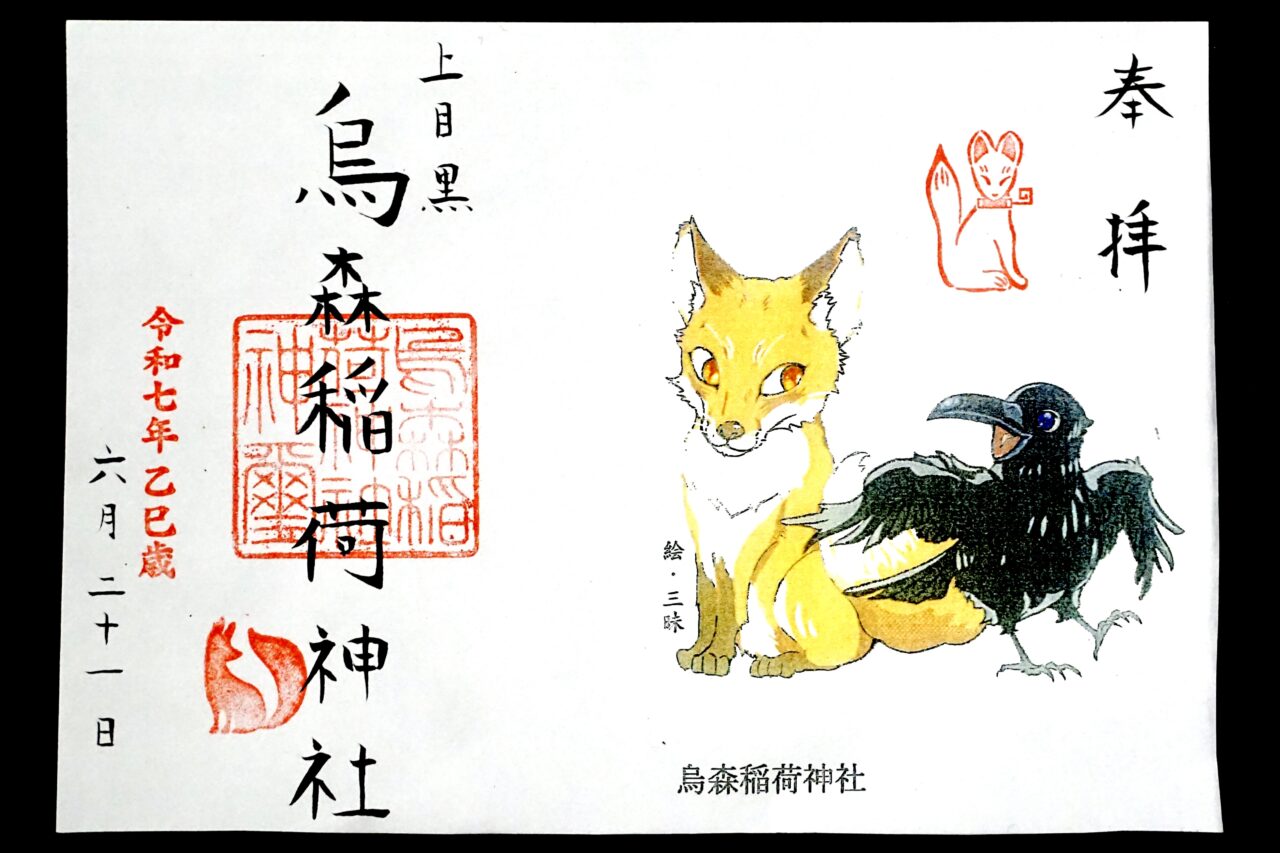 奉拝
絵・三昧
烏森稲荷神社
上目黒
烏森稲荷神社
烏森稲
荷神社
神璽
令和七年乙巳歳
六月二十一日